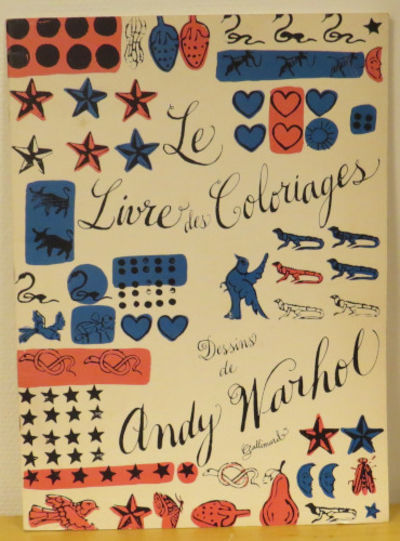 Le
Livre des Coloriages
Dessins
de
Andy Warhol
Gallimard